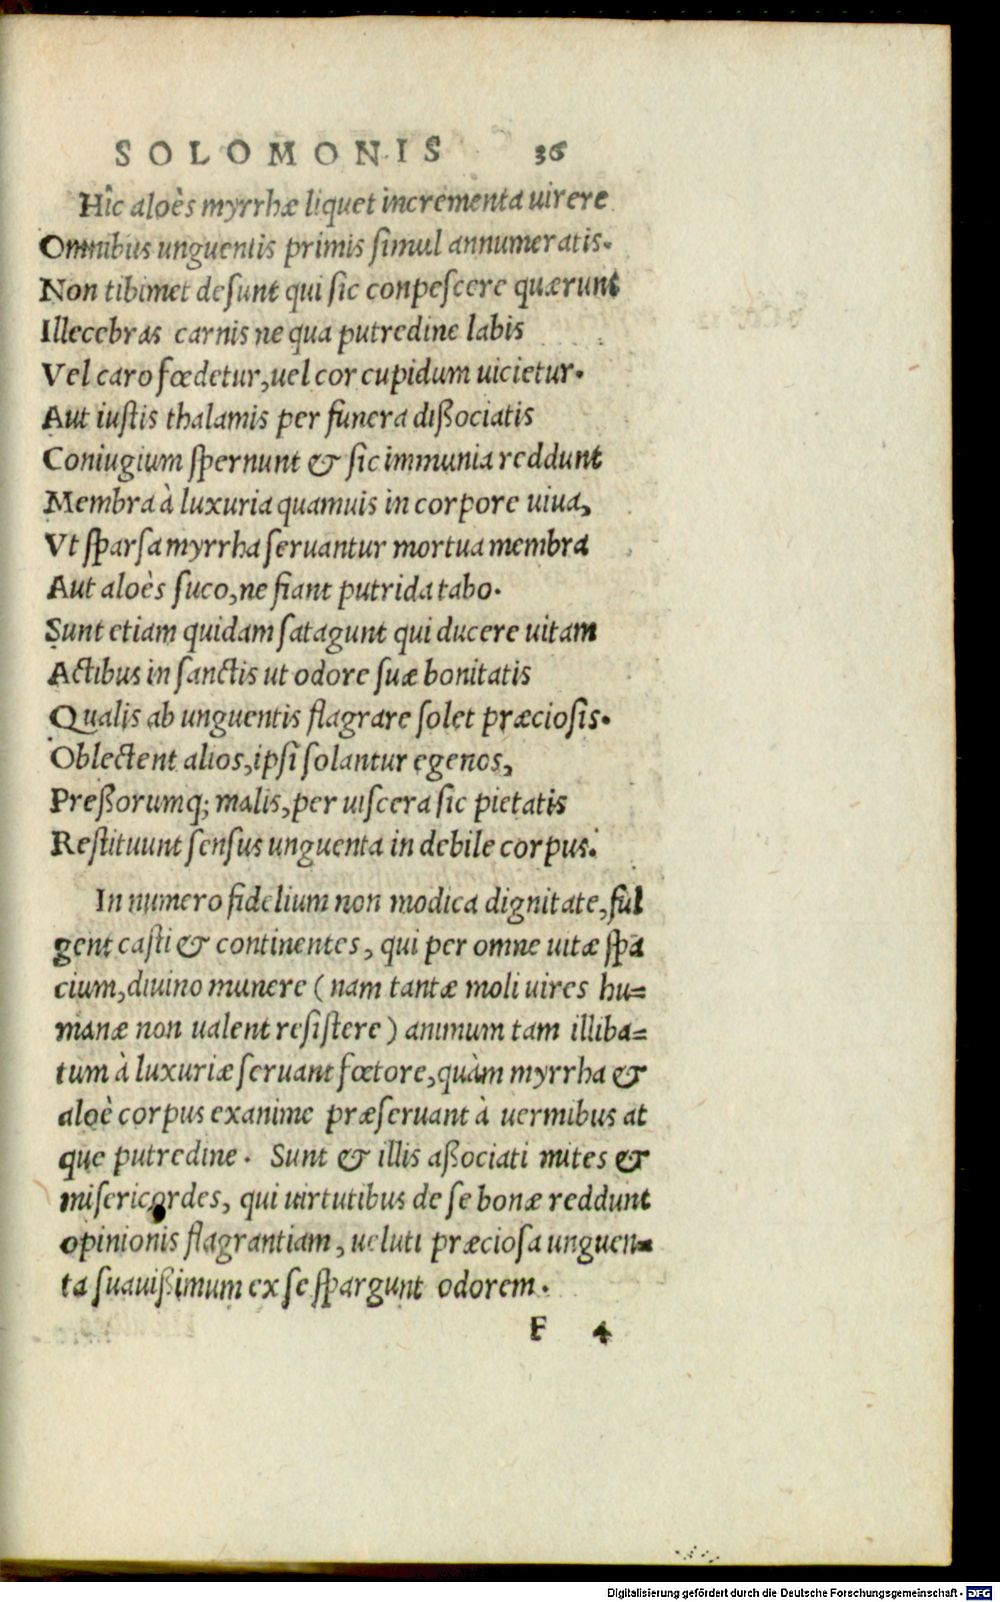 SOLOMONIS 36
Hîc aloès myrrhæ liquet incrementa uirere
Omnibus unguentis primis simul annumeratis.
Non tibimet desunt qui sic conpescere quærunt
Illecebras carnis ne qua putredine labis
Vel caro fœdetur, uel cor cupidum uicietur.
Aut iustis thalamis per funera dißociatis
Coniugium spernunt & sic immunia reddunt
Membra à luxuria quamuis in corpore uiua,
Vt sparsa myrrha seruantur mortua membra
Aut aloès suco, ne fiant putrida tabo.
Sunt etiam quidam satagunt qui ducere uitam
Actibus in sanctis ut odore suæ bonitatis
Qualis ab unguentis flagrare solet præciosis.
Oblectent alios, ipsi solantur egenos,
Preßorumq; malis, per uiscera sic pietatis
Restituunt sensus unguenta in debile corpus.
In numero fidelium non modica dignitate, ful
gent casti & continentes, qui per omne uitæ spa
cium, diuino munere (nam tantæ moli uires hu=
manæ non ualent resistere) animum tam illiba=
tum à luxuriæ seruant fœtore, quàm myrrha &
aloè corpus exanime præseruant à uermibus at
que putredine. Sunt & illis aßociati mites &
misericordes, qui uirtutibus de se bonæ reddunt
opinionis flagrantiam, ueluti præciosa unguen=
ta suauißimum ex se spargunt odorem.
F 4
Digitalisierung gefördert durch die Deutsche Forschungsgemeinschaft - DFG